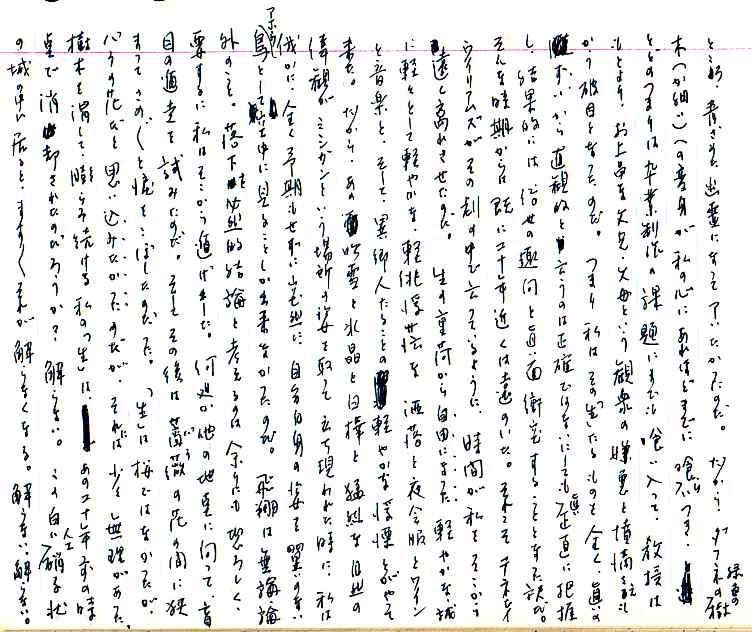 ところ、青ざめた幽霊になって了いたかったのだ。だから、緑色のダフネの樹
木(か細い)への変身が私の心にあれほどまでに喰らいつき、
とどのつまりは卒業制作の課題にまでも喰い入って、教授は
もとより、お上品な父兄・父母という観衆の嫌悪と憤懣を も
かう破目となったのだ。つまり私はその「生」たるものを全く真の
まずいから直観的と言うのは正確ではないにしても正直に把握
し、結果的には、俗世の趣向と真正面衝突することとなった訳だ。
そんな時期からは既に二十年近くは遠のいた。それこそテネシイ
ウィリアムズがその劇の中で言っているように、時間が私をそこから
遠く離れさせたのだ。生の重荷から自由になった軽やかな城
に軽々として軽やかな、軽佻浮 な洒落と夜会服とワイン
と音楽と、そして異郷人たることの軽やかな とがやって
来た。だから、あの吹雪と水晶と白樺と猛烈な自然の
偉観がミシガンという場所の姿を取って立ち現われた時に、私は
俄かに、全く予期もせずに突然に自分自身の姿を翼のない
鳥として空中に見ることしか出来なかったのだ。飛翔は無論論
外のこと。落下を必然的結論と考えるのは余りにも恐ろしく、
要するに私はそこから逃げ出した。何処か他の地点に向って、盲
目の遁走を試みたのだ。そしてその後は薔薇の花の間に挟
まってさめざめと涙をこぼしたのだった。「生」は桜ではなかったが、
バラの花だと思い込みたかったのだが、それには少々無理があった。
樹木を渇して膨らみ続ける私の「生」は、あの二十年前の時
点で消却されたのだろうか?解らない。この白い人工硝子状
の城の中に居ると、ますますそれが解らなくなる。解らない解らない。